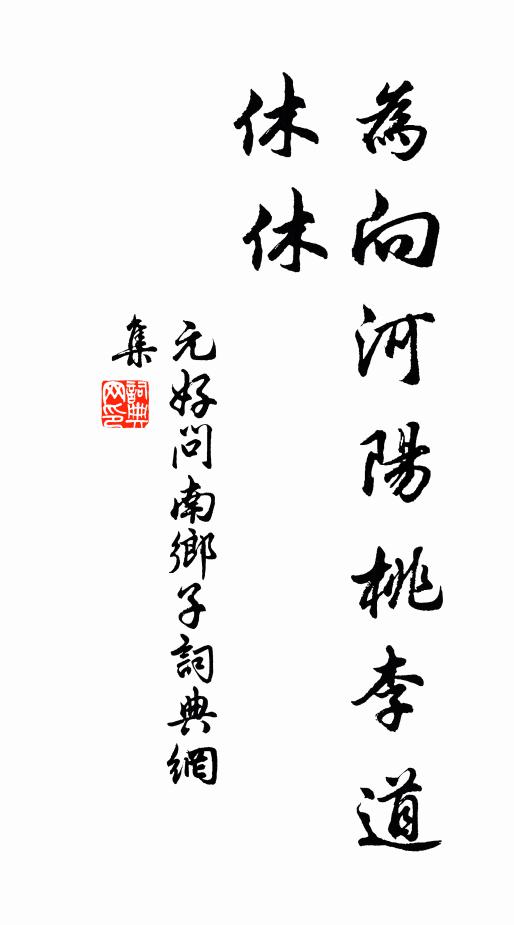 為向河陽桃李道
休休
元好問南鄉子詞典網
集
詞典
网印